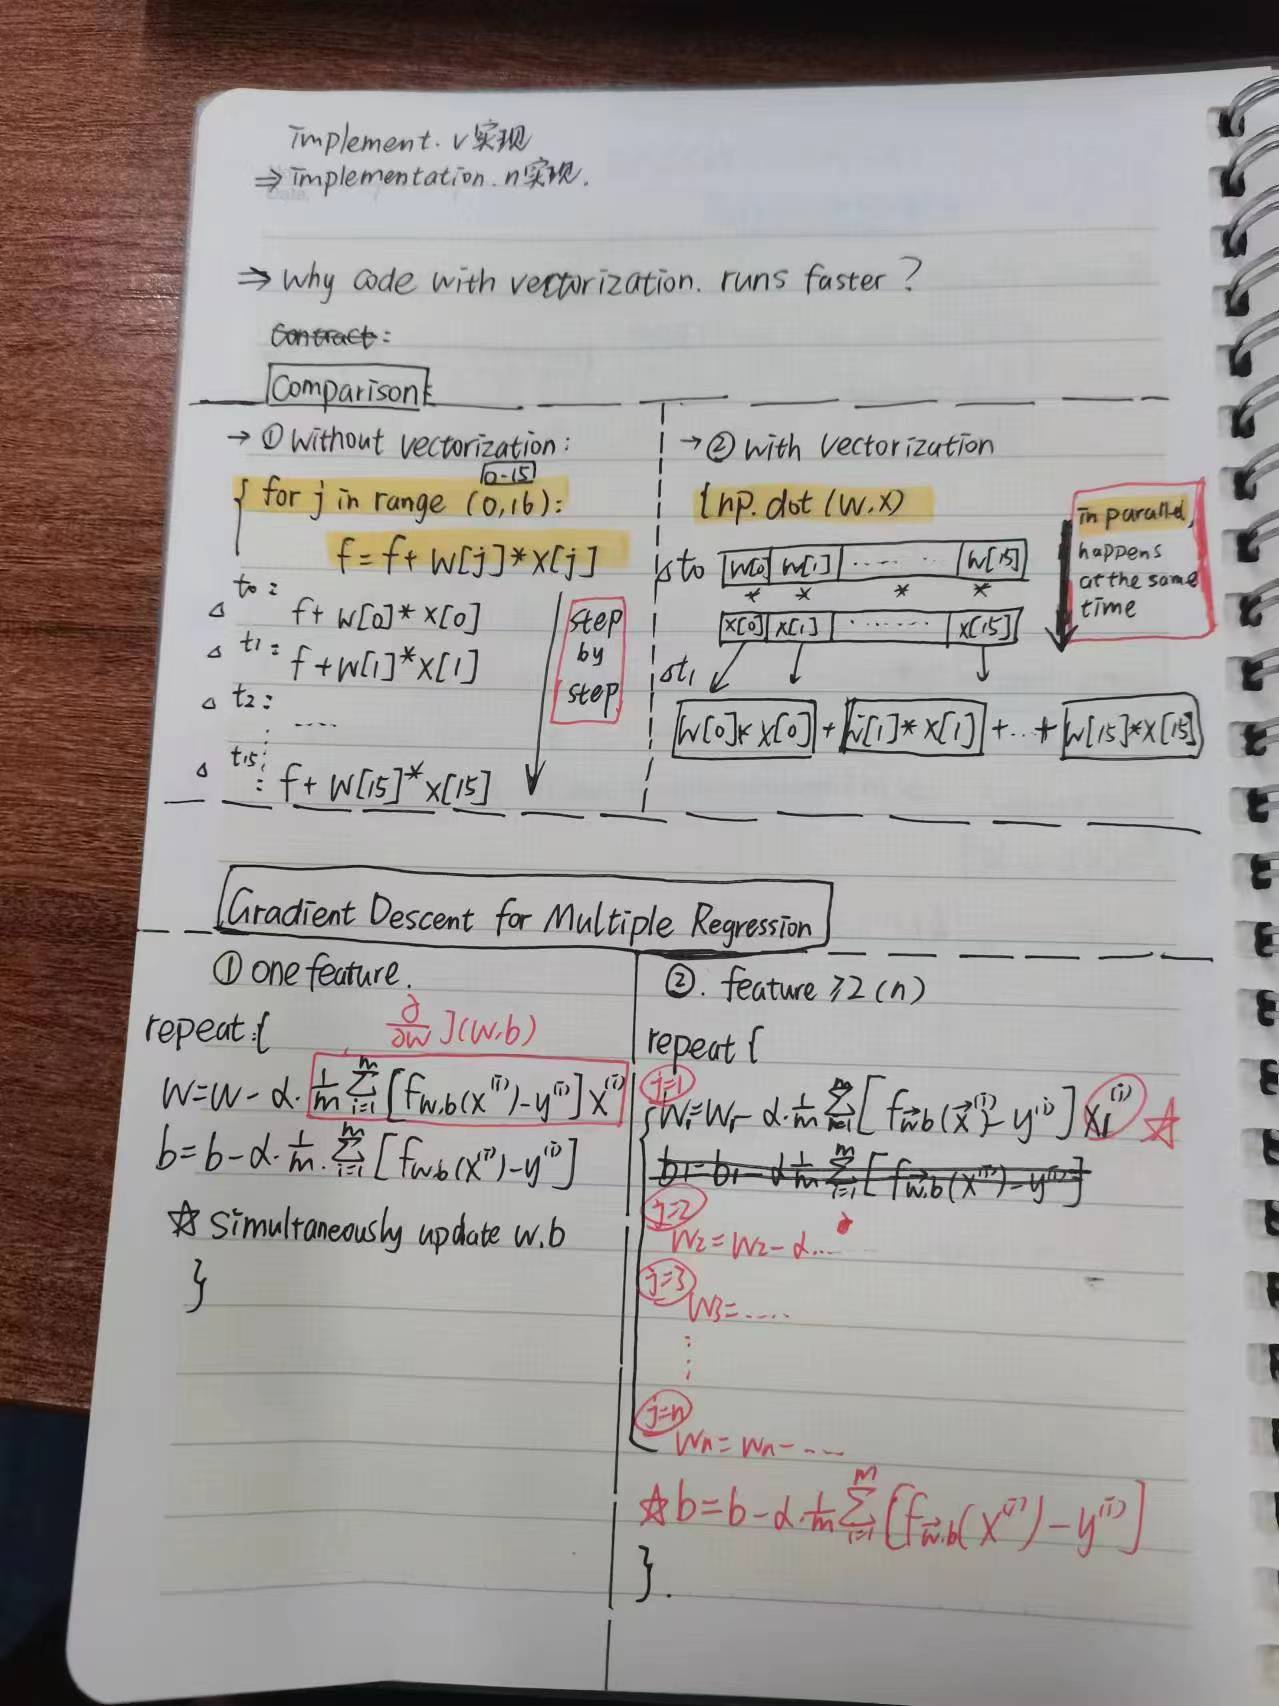 implement. v实现
⇒ implementation. n实现.
⇒ Why code with vectorization. runs faster?
Contract:
Comparison:
→ ① Without vectorization:
0-15
{ for j in range (0,16):
f = f + w[j] * x[j]
△ t0:
f + w[0] * x[0]
△ t1:
f + w[1] * x[1]
△ t2:
....
△ t15:
f + w[15] * x[15]
step
by
step
→ ② with vectorization
{ np.dot (w,x)
△ t0 w[0] w[1] ........ w[15]
* * * *
x[0] x[1] ........ x[15]
△ t1
w[0]*x[0] + w[1]*x[1] + ... + w[15]*x[15]
in parallel,
happens
at the same
time
Gradient Descent for Multiple Regression
① one feature.
repeat: {
∂/∂w J(w,b)
w = w - α · 1/m Σ_{i=1}^{m} [f_{w,b}(x^{(i)}) - y^{(i)}] x^{(i)}
b = b - α · 1/m · Σ_{i=1}^{m} [f_{w,b}(x^{(i)}) - y^{(i)}]
☆ simultaneously update w.b
}
②. feature ≥2 (n)
repeat {
j=1
w₁ = w₁ - α · 1/m Σ_{i=1}^{m} [f_{w⃗,b}(x⃗^{(i)}) - y^{(i)}] x₁^{(i)} ☆
b₁ = b₁ - α 1/m Σ_{i=1}^{m} [f_{w⃗,b}(x^{(i)}) - y^{(i)}]
j=2
w₂ = w₂ - α...
j=3
w₃ = .....
⋮
j=n
wn = wn - ....
☆ b = b - α · 1/m Σ_{i=1}^{m} [f_{w⃗,b}(x^{(i)}) - y^{(i)}]
}.